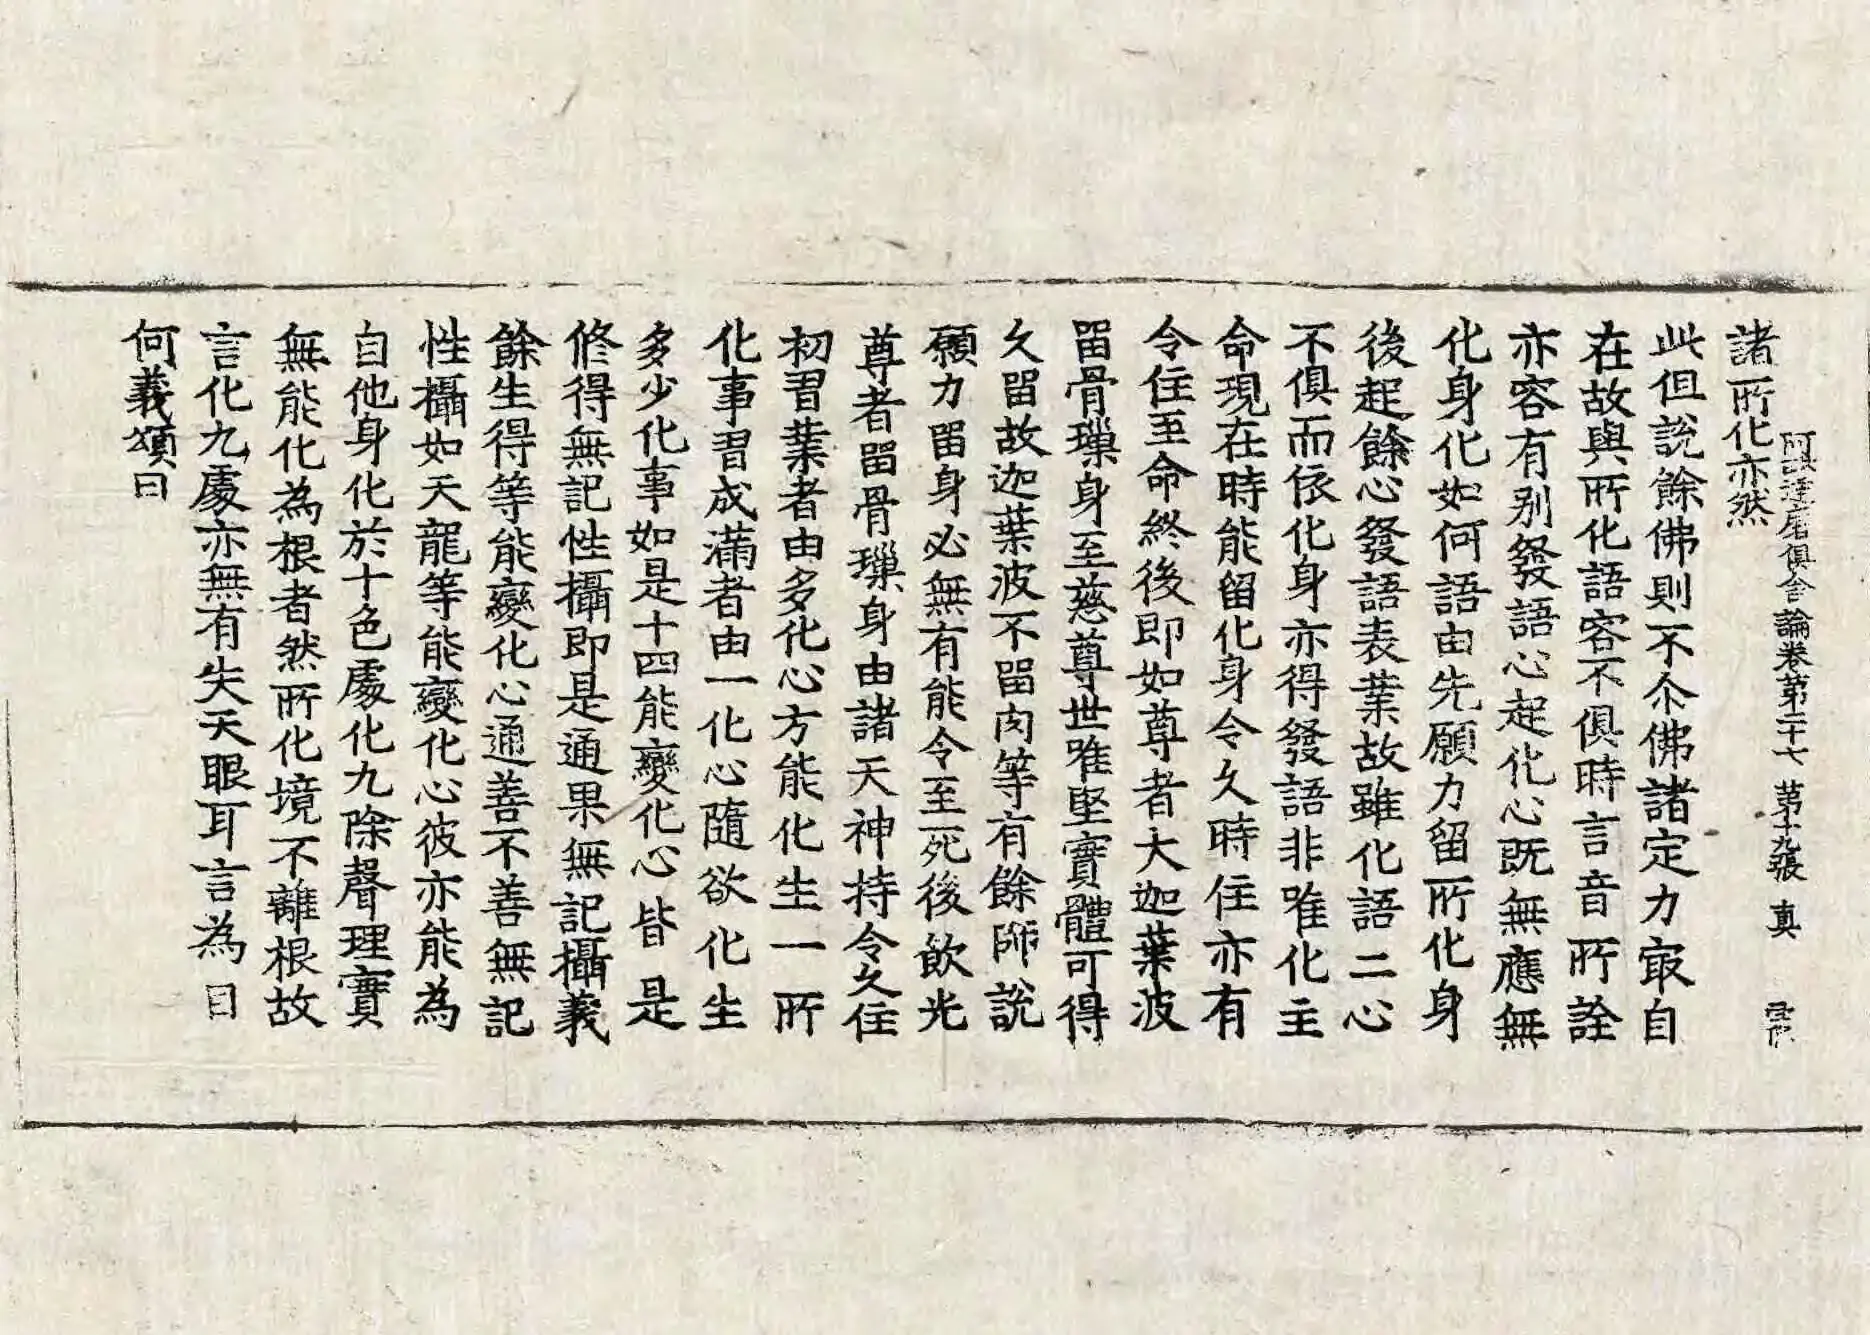 阿毗達磨俱舍論卷第二十七 第十九張 真
諸所化亦然
此但說餘佛則不尒佛諸定力㝡自
在故與所化語容不俱時言音所詮
亦容有別發語心起化心既無應無
化身化如何語由先願力留所化身
後起餘心發語表業故雖化語二心
不俱而依化身亦得發語非唯化主
命現在時能留化身令久時住亦有
令住至命終後即如尊者大迦葉波
留骨璅身至慈尊世唯堅實體可得
久留故迦葉波不留肉等有餘師說
願力留身必無有能令至死後飲光
尊者留骨璅身由諸天神持令久住
初習業者由多化心方能化生一所
化事習成滿者由一化心隨欲化生
多少化事如是十四能變化心皆是
修得無記性攝即是通果無記攝義
餘生得等能變化心通善不善無記
性攝如天龍等能變化心彼亦能為
自他身化於十色處化九除聲理實
無能化為根者然所化境不離根故
言化九處亦無有失天眼耳言為目
何義頌曰